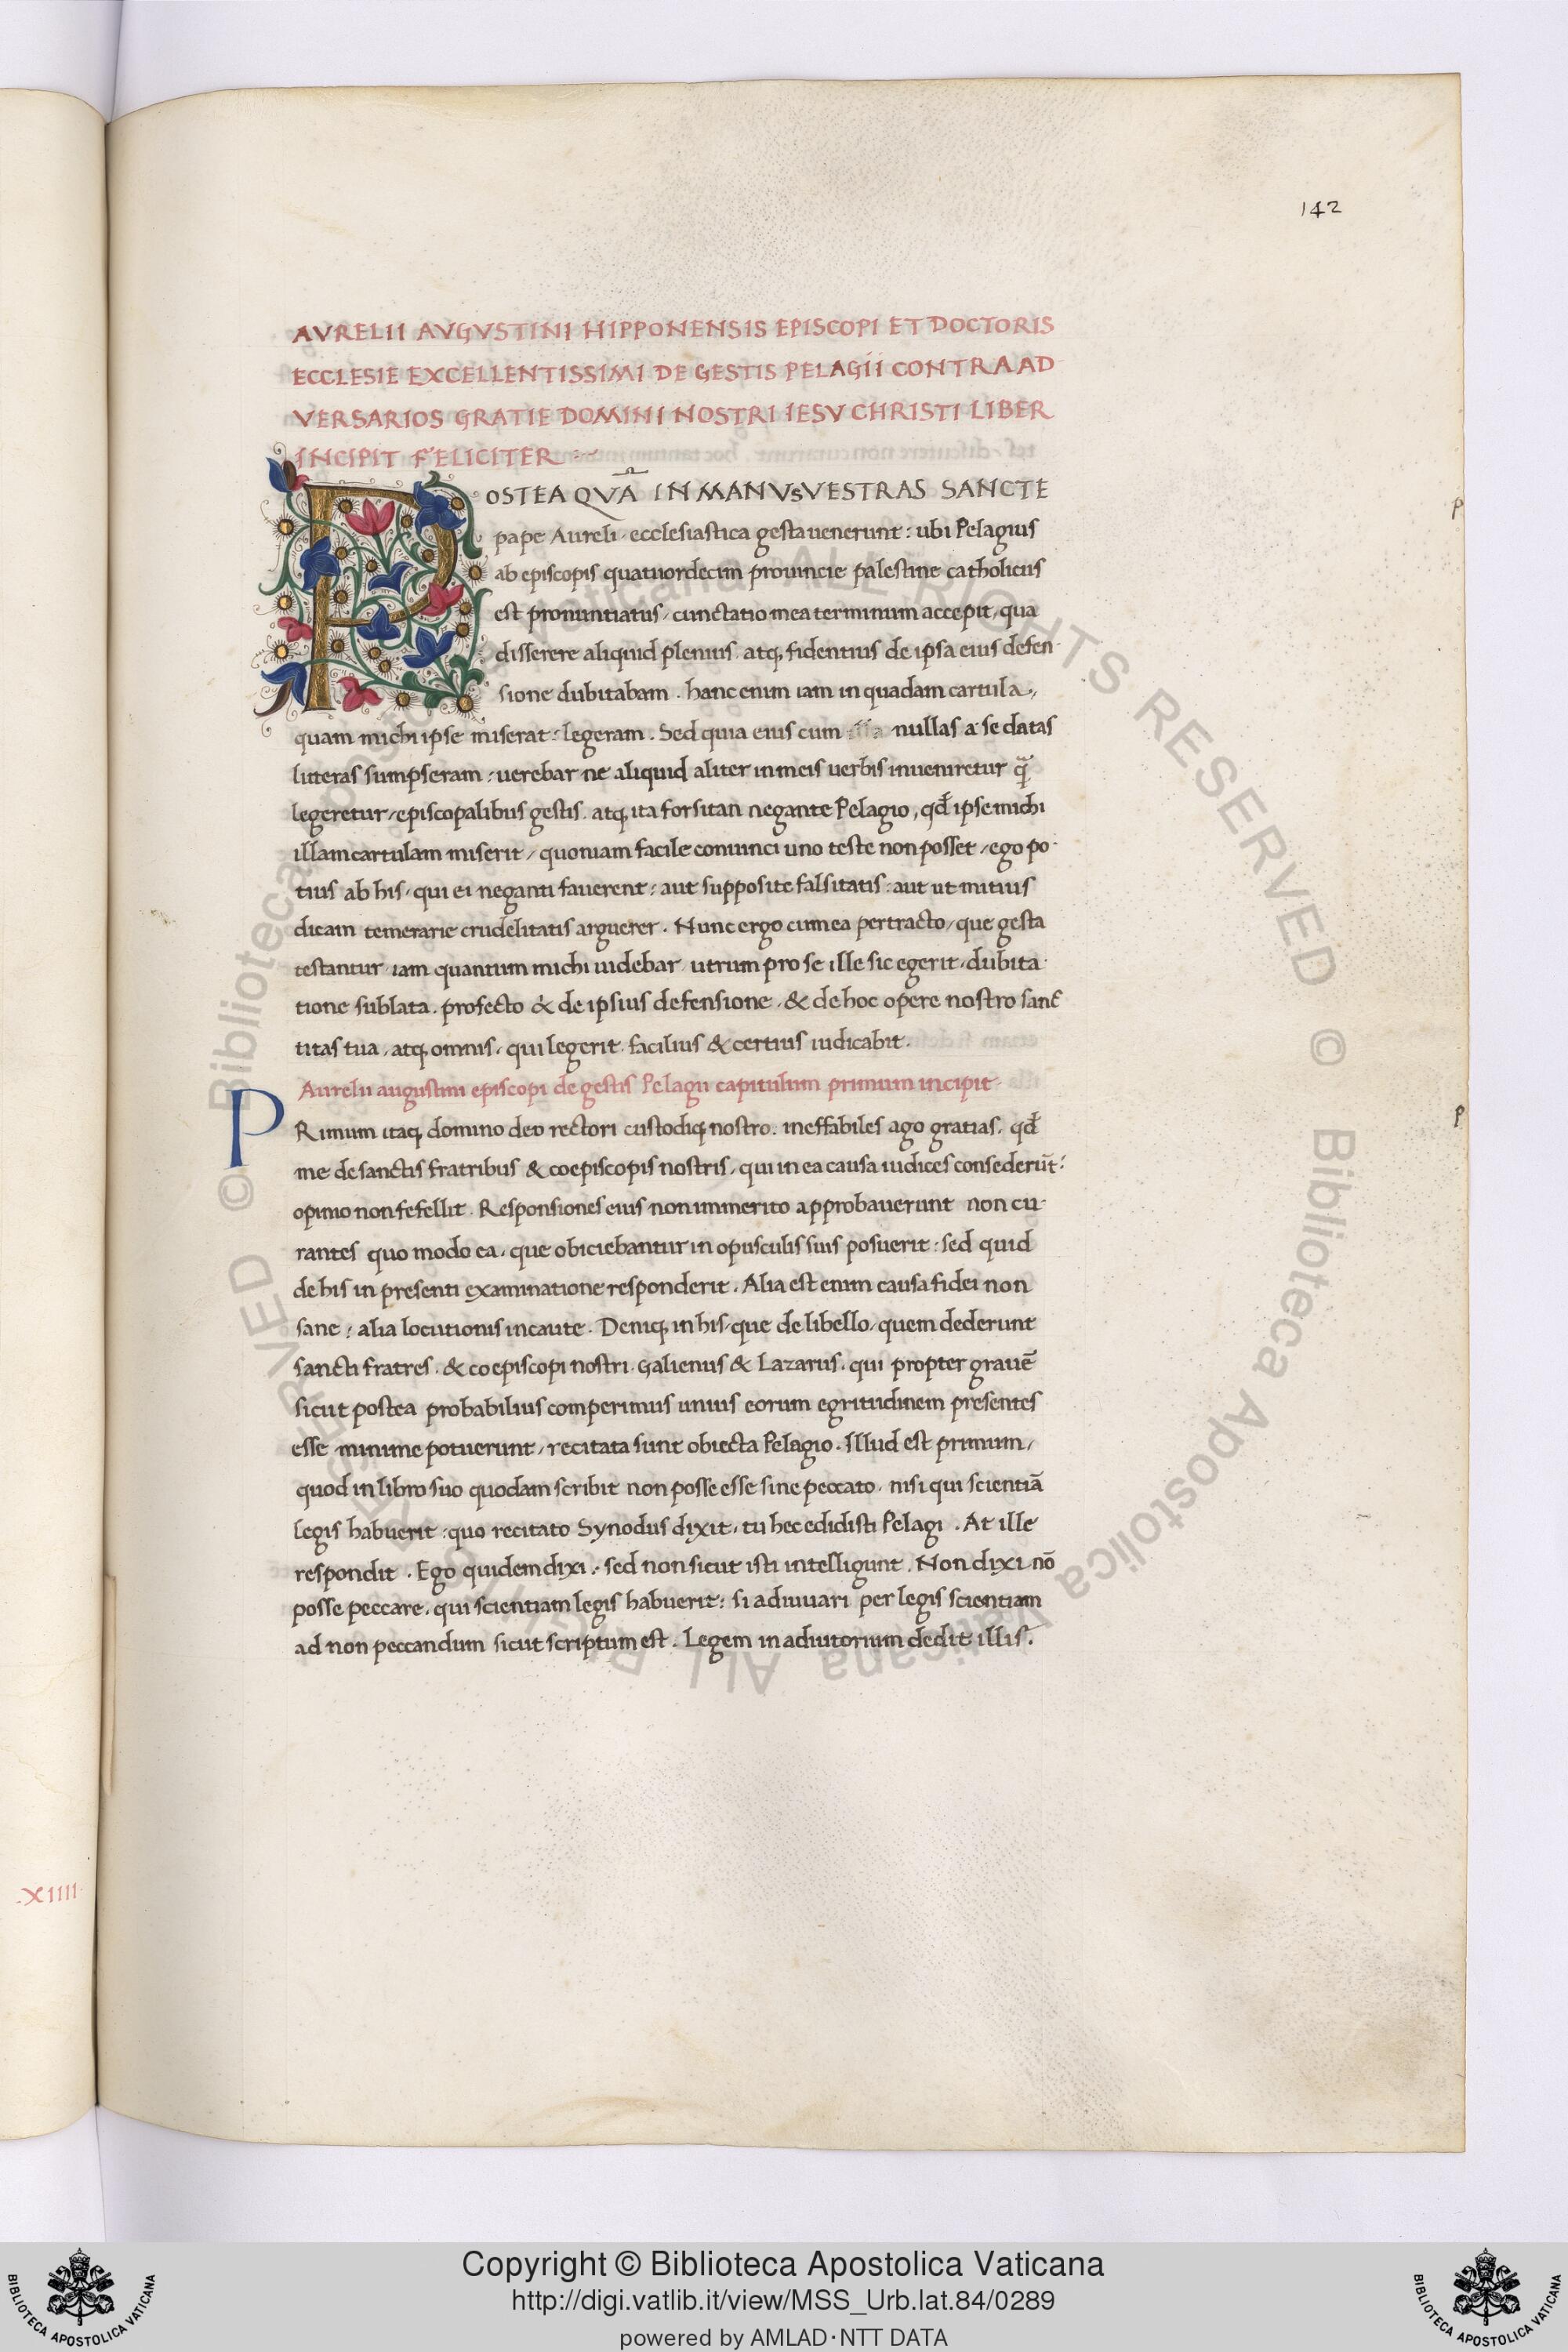 142
AVRELII AVGVSTINI HIPPONENSIS EPISCOPI ET DOCTORIS
ECCLESIE EXCELLENTISSIMI DE GESTIS PELAGII CONTRA AD
VERSARIOS GRATIE DOMINI NOSTRI IESV CHRISTI LIBER
INCIPIT FELICITER
POSTEA QVĀ IN MANVS VESTRAS SANCTE
pape Aureli. ecclesiastica gesta uenerunt: ubi Pelagius
ab episcopis quatuordecim prouincie palestine catholicus
est pronuntiatus, cunctatio mea terminum accepit, qua
disserere aliquid plenius. atq; fidentius de ipsa eius defen
sione dubitabam. hanc enim iam in quadam cartula,
quam michi ipse miserat: legeram. Sed quia eius cum nullas a se datas
litteras sumpseram: uerebar ne aliquid aliter in meis uerbis inueniretur q̄
legeretur, episcopalibus gestis. atq; ita forsitan negante Pelagio, qđ ipse michi
illam cartulam miserit, quoniam facile conuinci uno teste non posset, ego po
tius ab his, qui ei neganti fauerent: aut supposite falsitatis: aut ut mitius
dicam temerarie crudelitatis arguerer. Nunc ergo cum ea pertracto, que gesta
testantur iam quantum michi uidebar utrum pro se ille sic egerit, dubita
tione sublata. profecto & de ipsius defensione, & de hoc opere nostro sanc
titas tua, atq; omnis, qui legerit. facilius & certius iudicabit.
Aurelii augustini episcopi de gestis Pelagii capitulum primum incipit
PRimum itaq; domino deo rectori custodiq; nostro. ineffabiles ago gratias. qđ
me de sanctis fratribus & coepiscopis nostris, qui in ea causa iudices consederūt:
opinio non fefellit. Responsiones eius non immerito approbauerunt non cu
rantes quo modo ea, que obiciebantur in opusculis suis posuerit: sed quid
de his in presenti examinatione responderit. Alia est enim causa fidei non
sane: alia locutionis incaute. Deniq; in his, que de libello, quem dederunt
sancti fratres. & coepiscopi nostri. Galienus & Lazarus. qui propter grauē
sicut postea probabilius comperimus unius eorum egritudinem presentes
esse minime potuerunt, recitata sunt obiecta Pelagio. Illud est primum,
quod in libro suo quodam scribit non posse esse sine peccato. nisi qui scientiā
legis habuerit: quo recitato Synodus dixit, tu hec edidisti Pelagi. At ille
respondit. Ego quidem dixi: sed non sicut isti intelligunt. Non dixi nō
posse peccare. qui scientiam legis habuerit: si adiuuari per legis scientiam
ad non peccandum sicut scriptum est. Legem in adiutorium dedit illis.
p
p
.XIIII.
© Biblioteca Apostolica Vaticana ALL RIGHTS RESERVED
© Biblioteca Apostolica Vaticana ALL RIGHTS RESERVED
Copyright © Biblioteca Apostolica Vaticana
http://digi.vatlib.it/view/MSS_Urb.lat.84/0289
powered by AMLAD·NTT DATA
BIBLIOTECA APOSTOLICA VATICANA
BIBLIOTECA APOSTOLICA VATICANA